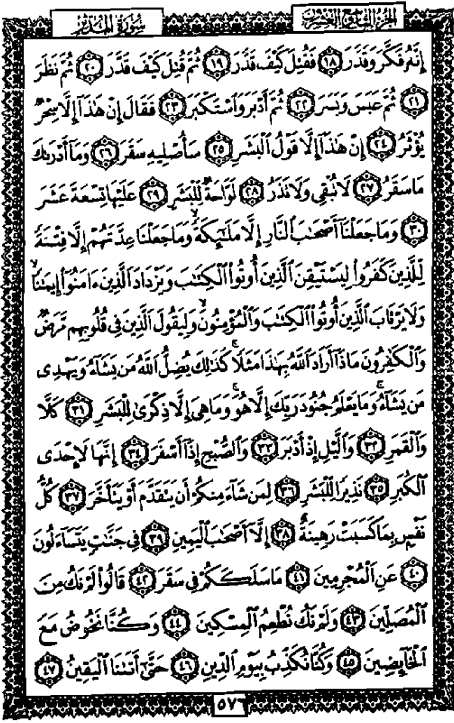 الجزء التاسع والعشرون سورة المدثر
إِنَّهُۥ فَكَّرَ وَقَدَّرَ ۝١٨ فَقُتِلَ كَيْفَ قَدَّرَ ۝١٩ ثُمَّ قُتِلَ كَيْفَ قَدَّرَ ۝٢٠ ثُمَّ نَظَرَ
۝٢١ ثُمَّ عَبَسَ وَبَسَرَ ۝٢٢ ثُمَّ أَدْبَرَ وَٱسْتَكْبَرَ ۝٢٣ فَقَالَ إِنْ هَٰذَآ إِلَّا سِحْرٌ
يُؤْثَرُ ۝٢٤ إِنْ هَٰذَآ إِلَّا قَوْلُ ٱلْبَشَرِ ۝٢٥ سَأُصْلِيهِ سَقَرَ ۝٢٦ وَمَآ أَدْرَىٰكَ
مَا سَقَرُ ۝٢٧ لَا تُبْقِى وَلَا تَذَرُ ۝٢٨ لَوَّاحَةٌ لِّلْبَشَرِ ۝٢٩ عَلَيْهَا تِسْعَةَ عَشَرَ
۝٣٠ وَمَا جَعَلْنَآ أَصْحَٰبَ ٱلنَّارِ إِلَّا مَلَٰٓئِكَةً ۙ وَمَا جَعَلْنَا عِدَّتَهُمْ إِلَّا فِتْنَةً
لِّلَّذِينَ كَفَرُوا۟ لِيَسْتَيْقِنَ ٱلَّذِينَ أُوتُوا۟ ٱلْكِتَٰبَ وَيَزْدَادَ ٱلَّذِينَ ءَامَنُوٓا۟ إِيمَٰنًا ۙ
وَلَا يَرْتَابَ ٱلَّذِينَ أُوتُوا۟ ٱلْكِتَٰبَ وَٱلْمُؤْمِنُونَ ۙ وَلِيَقُولَ ٱلَّذِينَ فِى قُلُوبِهِم مَّرَضٌ
وَٱلْكَٰفِرُونَ مَاذَآ أَرَادَ ٱللَّهُ بِهَٰذَا مَثَلًا ۚ كَذَٰلِكَ يُضِلُّ ٱللَّهُ مَن يَشَآءُ وَيَهْدِى
مَن يَشَآءُ ۚ وَمَا يَعْلَمُ جُنُودَ رَبِّكَ إِلَّا هُوَ ۚ وَمَا هِىَ إِلَّا ذِكْرَىٰ لِلْبَشَرِ ۝٣١ كَلَّا
وَٱلْقَمَرِ ۝٣٢ وَٱلَّيْلِ إِذْ أَدْبَرَ ۝٣٣ وَٱلصُّبْحِ إِذَآ أَسْفَرَ ۝٣٤ إِنَّهَا لَإِحْدَى
ٱلْكُبَرِ ۝٣٥ نَذِيرًا لِّلْبَشَرِ ۝٣٦ لِمَن شَآءَ مِنكُمْ أَن يَتَقَدَّمَ أَوْ يَتَأَخَّرَ ۝٣٧ كُلُّ
نَفْسٍۭ بِمَا كَسَبَتْ رَهِينَةٌ ۝٣٨ إِلَّآ أَصْحَٰبَ ٱلْيَمِينِ ۝٣٩ فِى جَنَّٰتٍ يَتَسَآءَلُونَ
۝٤٠ عَنِ ٱلْمُجْرِمِينَ ۝٤١ مَا سَلَكَكُمْ فِى سَقَرَ ۝٤٢ قَالُوا۟ لَمْ نَكُ مِنَ
ٱلْمُصَلِّينَ ۝٤٣ وَلَمْ نَكُ نُطْعِمُ ٱلْمِسْكِينَ ۝٤٤ وَكُنَّا نَخُوضُ مَعَ
ٱلْخَآئِضِينَ ۝٤٥ وَكُنَّا نُكَذِّبُ بِيَوْمِ ٱلدِّينِ ۝٤٦ حَتَّىٰٓ أَتَىٰنَا ٱلْيَقِينُ ۝٤٧
٥٧٦